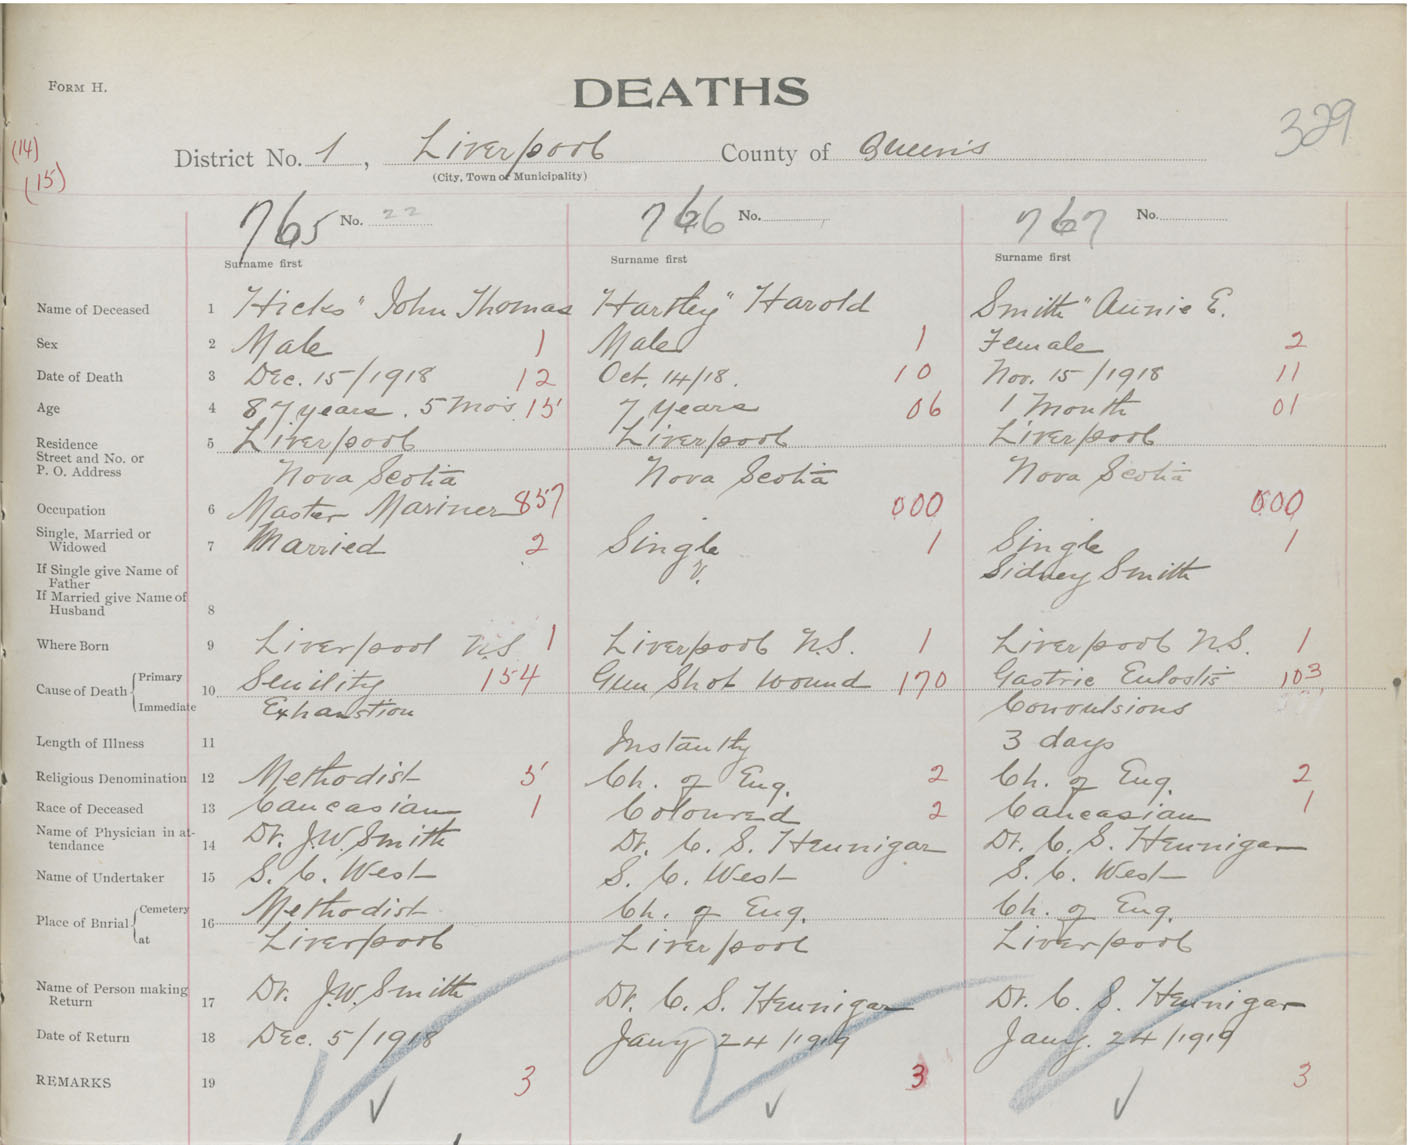 FORM H.
DEATHS
329
(14)
(15)
District No. 1, Liverpool County of Queens
(City, Town or Municipality)
765 No. 22 766 No. 767 No.
Surname first Surname first Surname first
Name of Deceased 1 Hicks" John Thomas "Hartley" Harold Smith" Annie E.
Sex 2 Male 1 Male 1 Female 2
Date of Death 3 Dec. 15/1918 12 Oct. 14/18. 10 Nov. 15/1918 11
Age 4 87 years. 5 Mos 15 7 years 06 1 Month 01
Residence 5 Liverpool Liverpool Liverpool
Street and No. or
P. O. Address Nova Scotia Nova Scotia Nova Scotia
Occupation 6 Master Mariner 857 000 000
Single, Married or
Widowed 7 Married 2 Single 1 Single 1
If Single give Name of
Father Sidney Smith
If Married give Name of
Husband 8
Where Born 9 Liverpool N.S. 1 Liverpool N.S. 1 Liverpool N.S. 1
Cause of Death Primary 10 Senility 154 Gun Shot Wound 170 Gastric 103
Immediate Exhaustion Convulsions
Length of Illness 11 Instantly 3 days
Religious Denomination 12 Methodist 5 Ch. of Eng. 2 Ch. of Eng. 2
Race of Deceased 13 Caucasian 1 Coloured 2 Caucasian 1
Name of Physician in at-
tendance 14 Dr. J.W. Smith Dr. C. S. Hennigar Dr. C. S. Hennigar
Name of Undertaker 15 S. C. West S. C. West S. C. West
Place of Burial Cemetery 16 Methodist Ch. of Eng. Ch. of Eng.
at Liverpool Liverpool Liverpool
Name of Person making
Return 17 Dr. J.W. Smith Dr. C. S. Hennigar Dr. C. S. Hennigar
Date of Return 18 Dec. 5/1918 Jany 24/1919 Jany. 24/1919
REMARKS 19 3 3 3